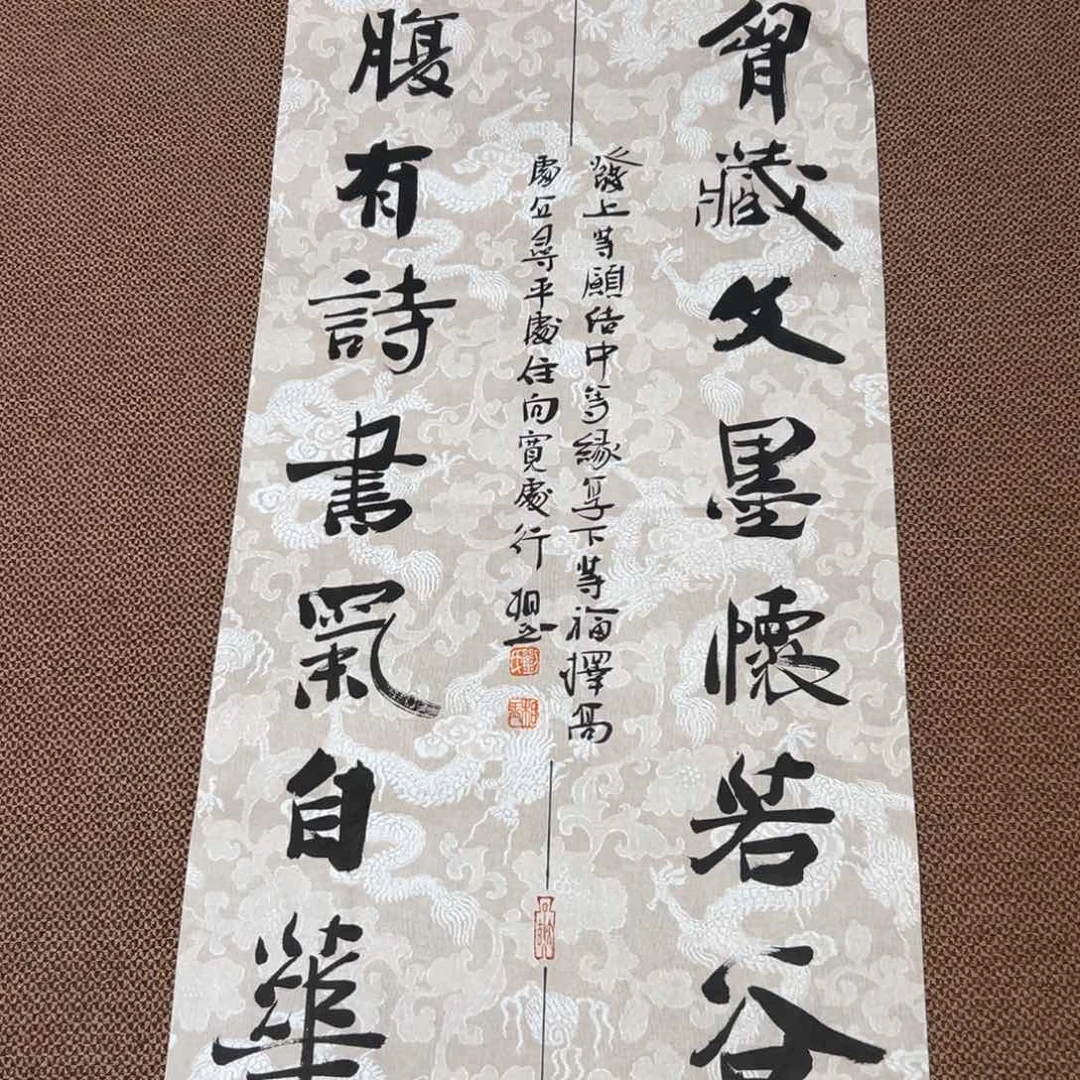 胷藏文墨懷若谷
發上等願結中等緣享下等福擇高
處立尋平處住向寬處行
腹有詩書氣自華